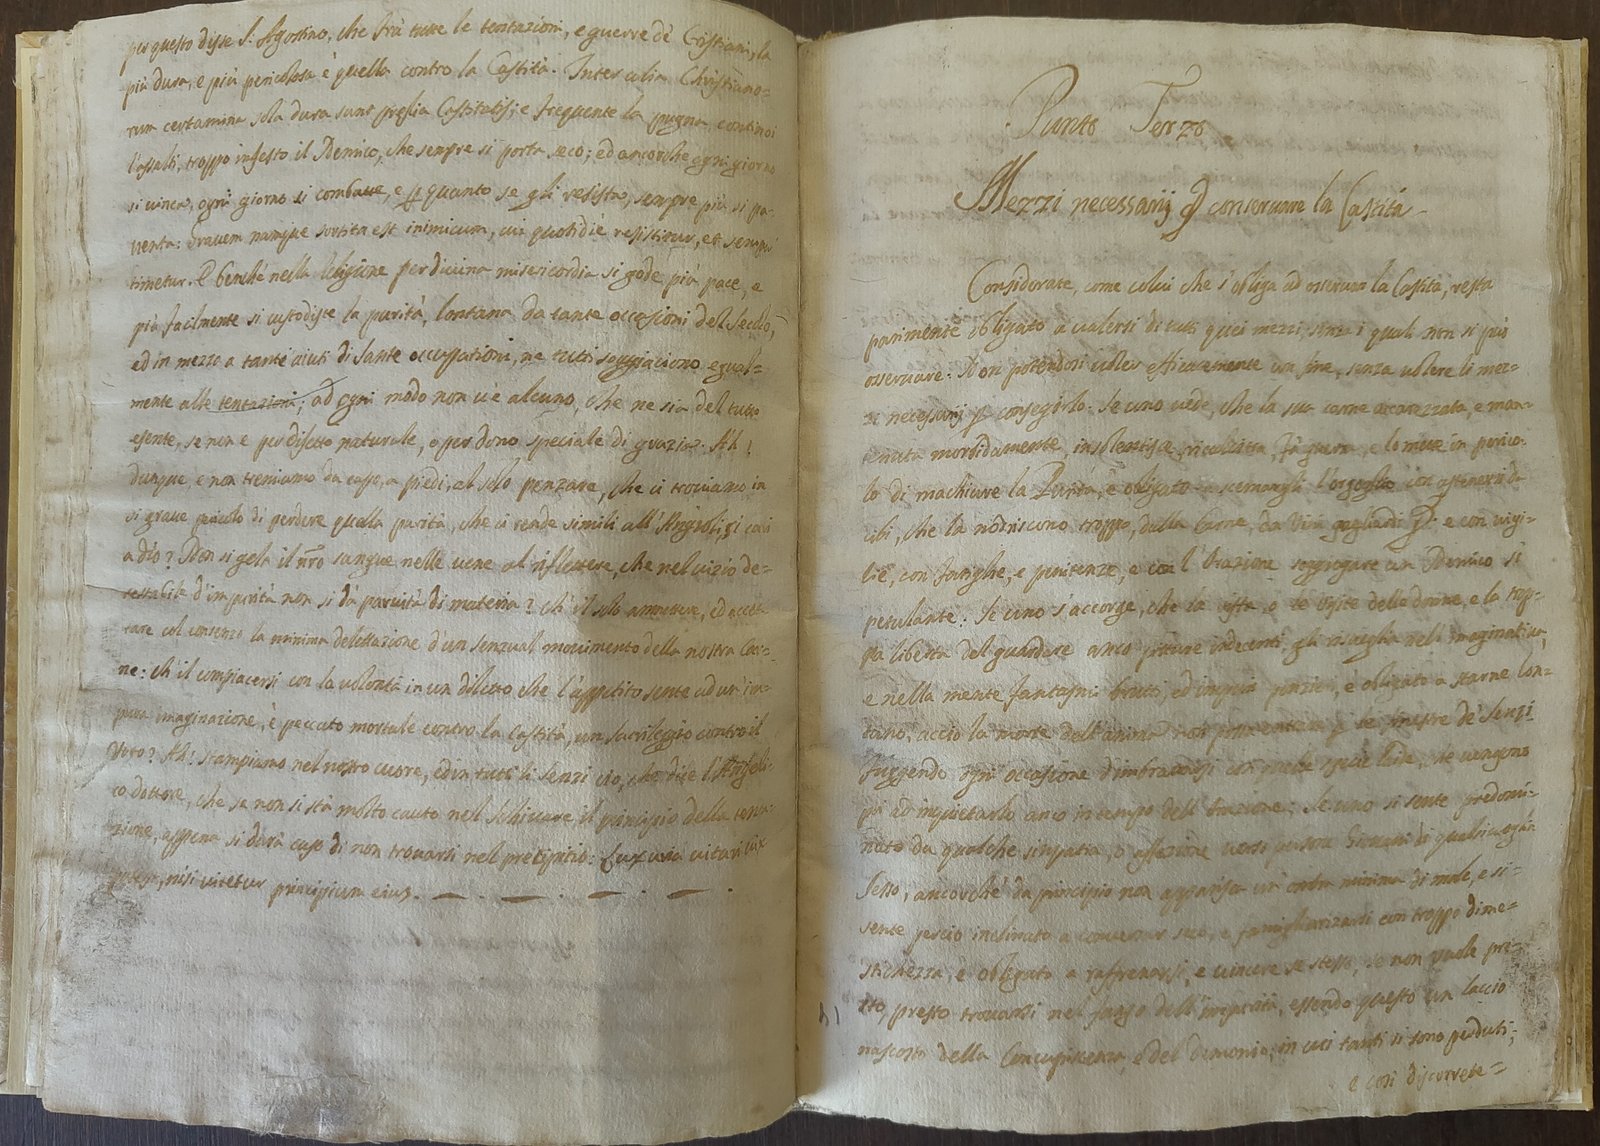 per questo disse S. Agostino, che frà tutte le tentazioni, e guerre dè Cristiani, la
più dura, e più pericolosa è quella contro la Castità. Inter omnia Christiano=
rum certamina sola dura sunt prælia Castitatis; e frequente la pugna, continoi
l'assalti, troppo infesto il Nemico, che sempre si porta seco; ed ancorche ogni giorno
si vinca, ogni giorno si combatte, e p quanto se gli resista, sempre più si pa=
venta: Gravem namque sortita est inimicum, cui quotidiè resistitur, et semper
timetur. E benchè nella Religione per divina misericordia si gode più pace, e
più facilmente si custodisce la purità, lontana da tante occasioni del Secolo,
ed in mezzo a tanti aiuti di Sante occupationi, ne tutti soggiaciono egual=
mente alle tentazioni; ad ogni modo non vi è alcuno, che ne sia del tutto
esente, se non è per difetto naturale, o per dono speciale di grazia. Ah!
dunque, e non tremiamo da capo, a piedi, al solo penzare, che ci troviamo in
si grave pericolo di perdere quella purità, che ci rende simili all'Angioli, si cari
a dio? Non si gela il nro sangue nelle vene al riflettere, che nel vizio de=
testabile d'impurità non si dà parvità di materia? Ch'il solo ammettere, ed accet=
tare col consenzo la minima delettazione d'un senzual movimento della nostra Car=
ne: ch'il compiacersi con la volontà in un diletto che l'appetito sente ad un'im=
pura imaginazione, è peccato mortale contro la Castità, un sacrileggio contro il
Voto? Ah! stampiamo nel nostro cuore, ed in tutti li Senzi ciò, che dice l'Angeli=
co dottore, che se non si stà molto cauto nel schivare il principio della tenta=
zione, appena si darà caso di non trovarsi nel precipitio: Luxuria vitari vix
potest, nisi vitetur principium eius.
Punto Terzo
Mezzi necessarij p conservare la Castità
Considerate, come colui che s'obliga ad osservare la Castità, resta
parimente obligato a valersi di tutti quei mezzi, senza i quali non si può
osservare. Non potendosi voler efficacemente un fine, senza volere li mez=
zi necessarij p conseguirlo. Se uno vede, che la sua carne accarezzata, e man=
tenuta morbidamente, insolentisce, ricalcitra, fà guerra, e lo mette in perico=
lo di machiare la Purità, è obligato a scemargli l'orgoglio con astenersi da
cibi, che la nodriscono troppo, dalla Carne, da Vini gagliardi &: e con vigi=
lie, con fatighe, e penitenze, e con l'Orazione soggiogare un Nemico si
petulante. Se uno s'accorge, che la vista, o le visite delle donne, e la trop=
pa libertà del guardare anco pitture indecenti, gli risveglia nell'imaginativa,
e nella mente fantasmi brutti, ed impuri penzieri, è obligato a starne lon=
tano, acciò la morte dell'anima non p le finestre de' Senzi
fuggendo ogni occasione d'imbrattarsi con specie che vengono
poi ad inquietarlo anco in tempo dell'Orazione; Se uno si sente predomi=
nato da qualche simpatia, o affezione verso persone Giovani di qualsivoglia
Sesso, ancorchè da principio non apparisca un'ombra minima di male, e si=
sente perciò inclinato a conversar seco, e famigliarizarsi con troppo dime=
stichezza, è obligato a raffrenarsi, e vincere se stesso, se non vuole pre=
sto, presto trovarsi nel fango dell'impurità, essendo questo un laccio
nascosto della Concupiscenza, e del demonio, in cui tanti si sono perduti;
e così discorrete=